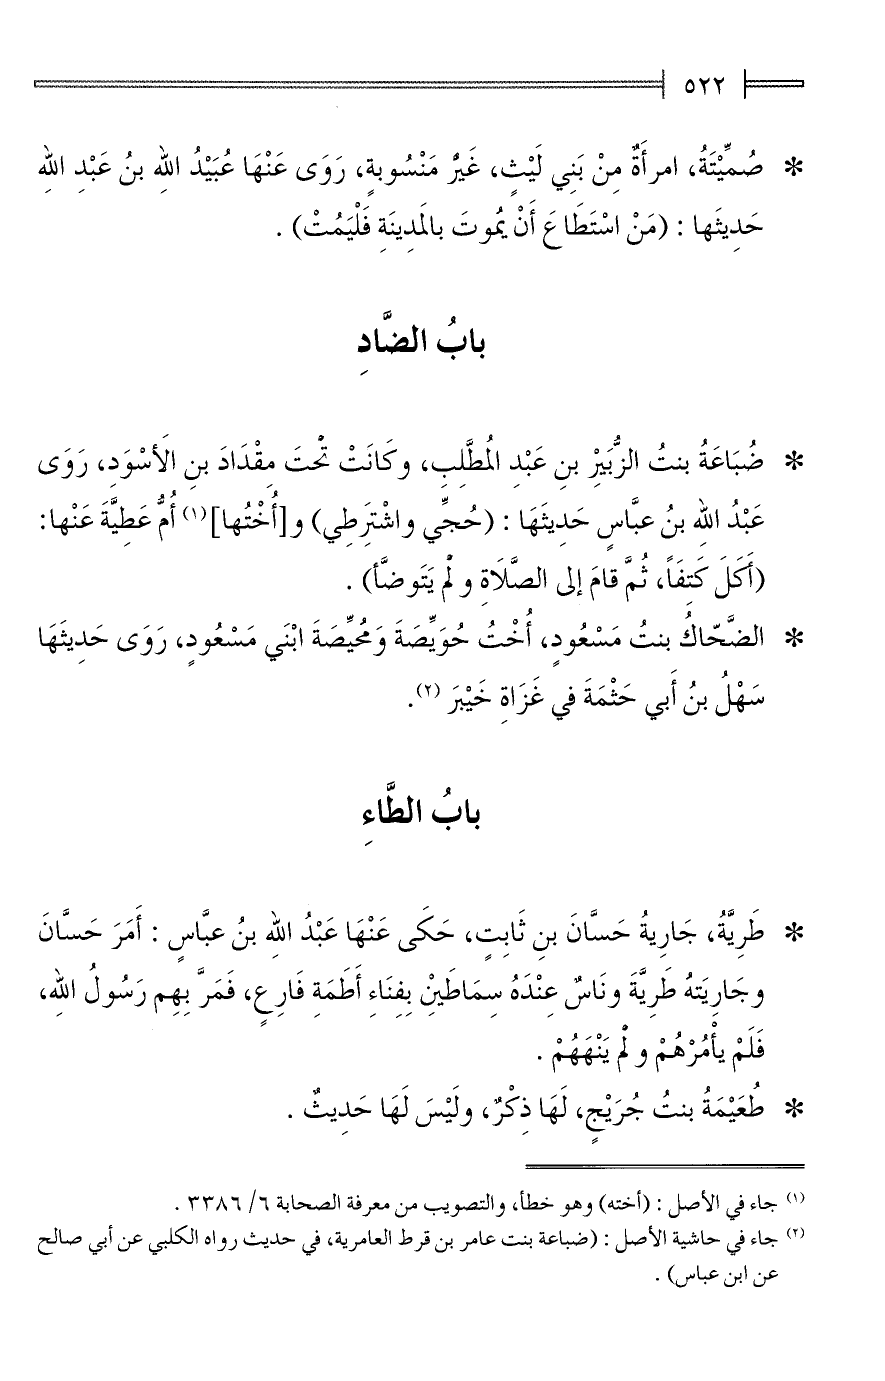 ٥٢٢
* صُمِّيْتَةُ، امرأَةٌ مِنْ بَنِي لَيْثٍ، غَيْرُ مَنْسُوبةٍ، رَوَى عَنْهَا عُبَيْدُ اللهِ بنُ عَبْدِ اللهِ
حَدِيثَها : (مَنْ اسْتَطَاعَ أَنْ يَمُوتَ بالَمدِينَةِ فَلْيَمُتْ) .
بابُ الضَّادِ
* ضُبَاعَةُ بنتُ الزُّبَيْرِ بنِ عَبْدِ المُطَّلِبِ، وكَانَتْ تْحتَ مِقْدَادَ بنِ الَأسْوَدِ، رَوَى
عَبْدُ اللهِ بنُ عبَّاسٍ حَدِيثَهَا : (حُجِّي واشْتَرَطِي) و[أُخْتُها](١) أُمُّ عَطِيَّةَ عَنْها:
(أَكَلَ كَتفَاً، ثُمَّ قامَ إلى الصَّلَاةِ و لْم يَتَوضَّأ) .
* الضَّحّاكُ بنتُ مَسْعُودٍ، أُخْتُ حُوَيِّصَةَ وَمُحيِّصَةَ ابْنَي مَسْعُودٍ، رَوَى حَدِيثَهَا
سَهْلُ بنُ أَبي حَثْمَةَ في غَزَاةِ خَيْبَرَ (٢).
بابُ الطَّاءِ
* طَرِيَّةُ، جَارِيةُ حَسَّانَ بنِ ثَابتٍ، حَكَى عَنْهَا عَبْدُ اللهِ بنُ عبَّاسٍ : أَمَرَ حَسَّانَ
وجَارِيَتهُ طَرِيَّةَ ونَاسٌ عِنْدَهُ سِمَاطَيْنِ بِفِنَاءِ أَطَمَةِ فَارِعٍ، فَمَرَّ بِهِم رَسُولُ اللهِ،
فَلَمْ يأْمُرْهُمْ و لْم يَنْهَهُمْ .
* طُعَيْمَةُ بنتُ جُرَيْجٍ، لَهَا ذِكْرٌ، ولَيْسَ لَهَا حَدِيثٌ .
(١) جاء في الأصل : (أخته) وهو خطأ، والتصويب من معرفة الصحابة ٦/ ٣٣٨٦ .
(٢) جاء في حاشية الأصل : (ضباعة بنت عامر بن قرط العامرية، في حديث رواه الكلبي عن أبي صالح
عن ابن عباس) .